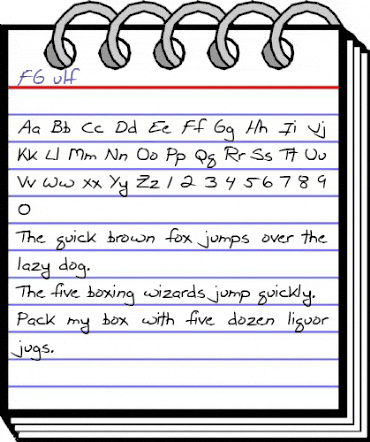 FG ulf
Aa Bb Cc Dd Ee Ff Gg Hh Ii Jj
Kk Ll Mm Nn Oo Pp Qq Rr Ss Tt Uu
Vv Ww Xx Yy Zz 1 2 3 4 5 6 7 8 9
0
The quick brown fox jumps over the
lazy dog.
The five boxing wizards jump quickly.
Pack my box with five dozen liquor
jugs.